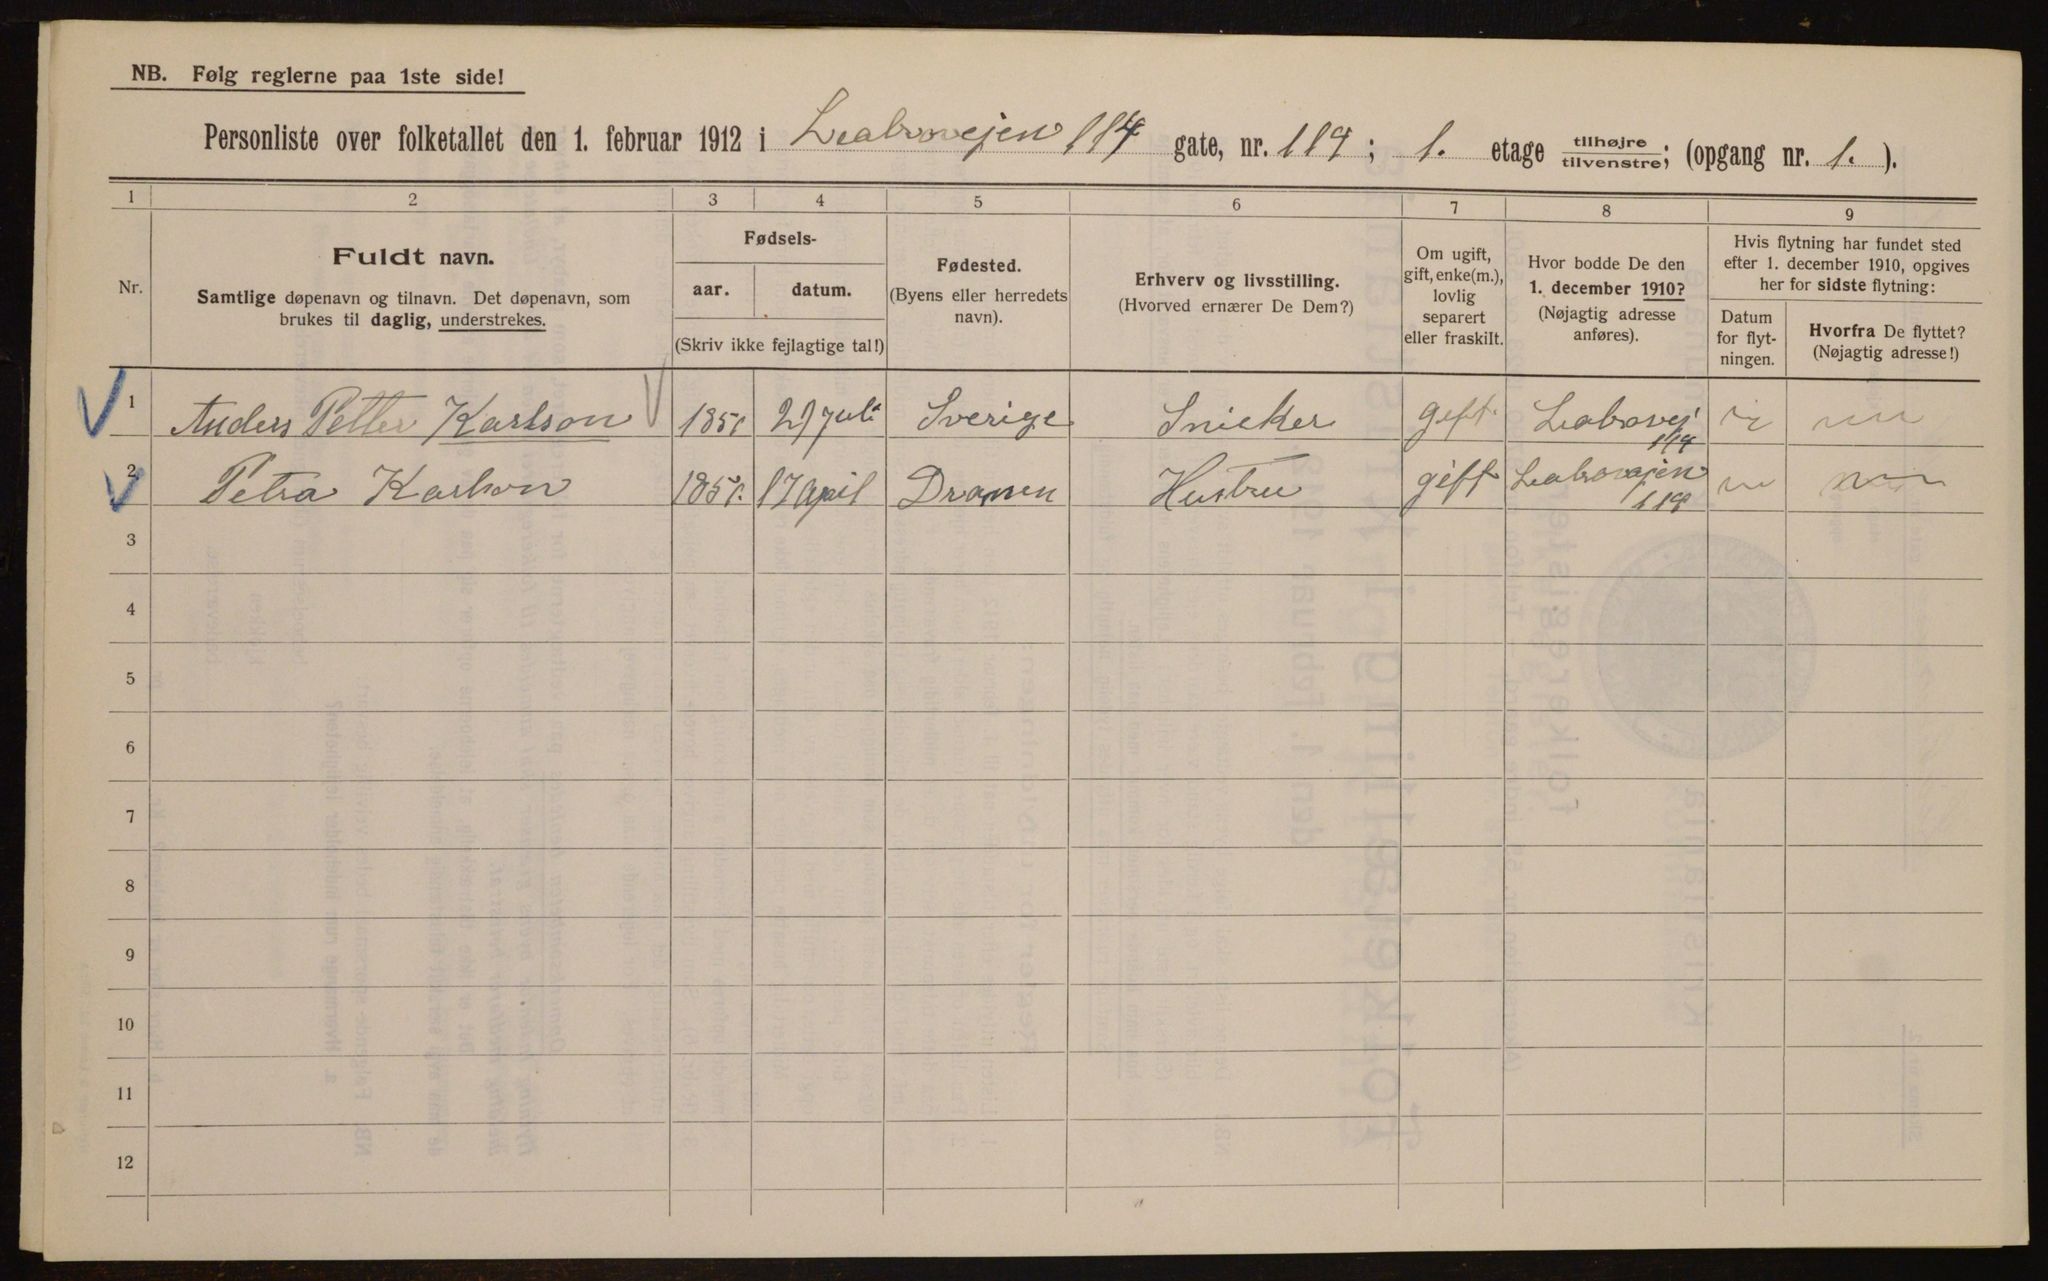 NB. Følg reglerne paa 1ste side!
Personliste over folketallet den 1. februar 1912 i Leabrovejen 114 gate, nr. 119; 1. etage tilhøjre tilvenstre; (opgang nr. 1. ).
1 2 3 4 5 6 7 8 9
Nr.
Fuldt navn.
Samtlige døpenavn og tilnavn. Det døpenavn, som
brukes til daglig, understrekes.
Fødsels-
aar. datum.
(Skriv ikke fejlagtige tal!)
Fødested.
(Byens eller herredets
navn).
Erhverv og livsstilling.
(Hvorved ernærer De Dem?)
Om ugift,
gift, enke(m.),
lovlig
separert
eller fraskilt.
Hvor bodde De den
1. december 1910?
(Nøjagtig adresse
anføres).
Hvis flytning har fundet sted
efter 1. december 1910, opgives
her for sidste flytning:
Datum
for flyt-
ningen.
Hvorfra De flyttet?
(Nøjagtig adresse!)
1 Anders Petter Karlson 27 juli Sverige Snicker gift Leabrovej
2 Petra Karlson 17 april Dramen Hustru gift Leabrovejen
3
4
5
6
7
8
9
10
11
12